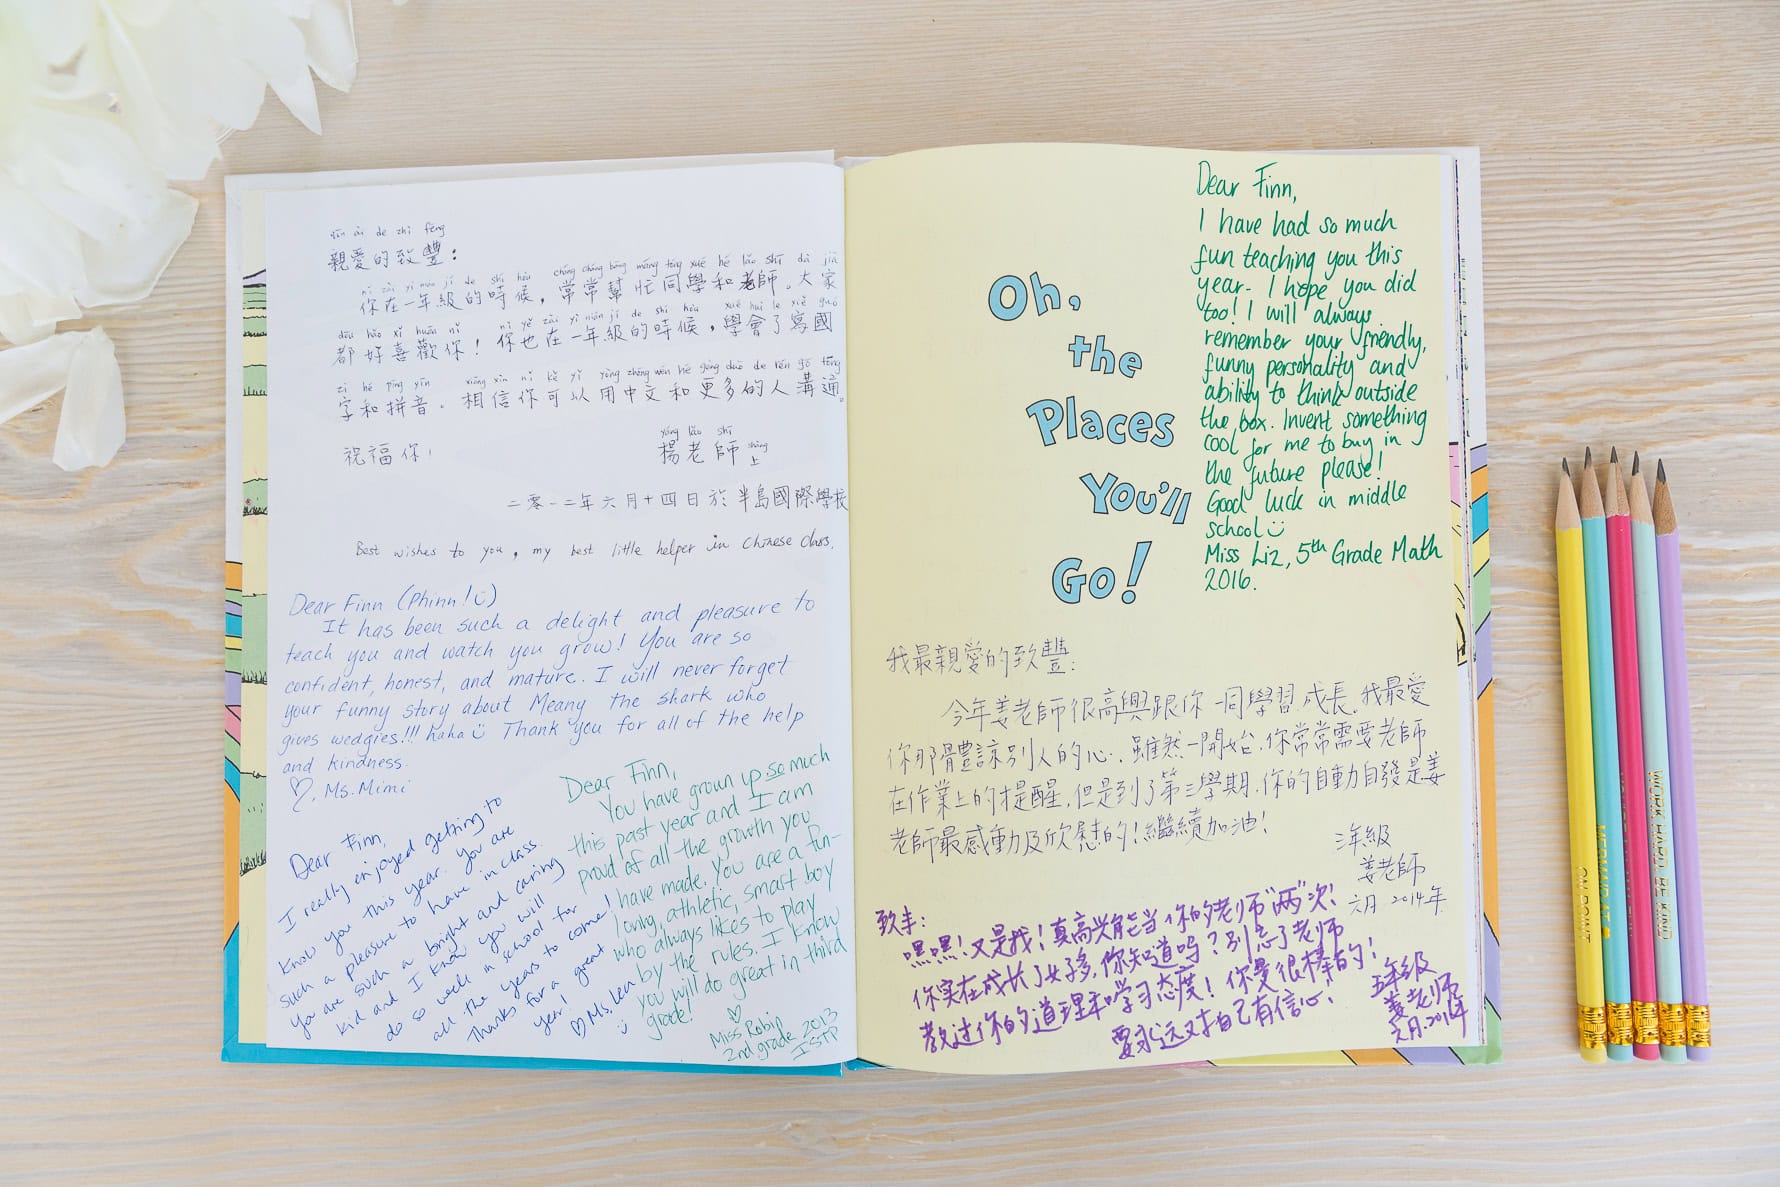 qīn ài de zhì fēng
親愛的致豐：
nǐ zài yì nián jí de shí hòu cháng cháng bāng máng tóng xué hé lǎo shī dà jiā
你在一年級的時候，常常幫忙同學和老師。大家
dōu hǎo xǐ huān nǐ nǐ yě zài yì nián jí de shí hòu xué huì le xiě guó
都好喜歡你！你也在一年級的時候，學會了寫國
zì hé pīng yīn xiāng xìn nǐ kě yǐ yòng zhōng wén hé gèng duō de rén gō tōng
字和拼音。相信你可以用中文和更多的人溝通。
yáng lǎo shī shàng
祝福你！ 楊老師上
二零一二年六月十四日於半島國際學校
Best wishes to you, my best little helper in Chinese class.
Dear Finn (Phinn!☺)
It has been such a delight and pleasure to
teach you and watch you grow! You are so
confident, honest, and mature. I will never forget
your funny story about Meany the shark who
gives wedgies!!! haha☺ Thank you for all of the help
and kindness.
♡, Ms. Mimi
Dear Finn,
I really enjoyed getting to
know you this year. You are
such a pleasure to have in class.
You are such a bright and caring
kid and I know you will
do so well in school for
all the years to come!
Thanks for a great
year!
♡ Ms. Lea
☺
Dear Finn,
You have grown up so much
this past year and I am
proud of all the growth you
have made. You are a fun-
loving, athletic, smart boy
who always likes to play
by the rules. I know
you will do great in third
grade!
♡
Miss Robin
2nd grade 2013
ISTP
Oh,
the
Places
You'll
Go!
Dear Finn,
I have had so much
fun teaching you this
year. I hope you did
too! I will always
remember your friendly,
funny personality and
ability to think outside
the box. Invent something
cool for me to buy in
the future please!
Good luck in middle
school☺
Miss Liz, 5th Grade Math
2016.
我最親愛的致豐：
今年姜老師很高興跟你一同學習成長，我最愛
你那體諒別人的心，雖然一開始，你常常需要老師
在作業上的提醒，但是到了第三學期，你的自動自發是姜
老師最感動及欣慰的！繼續加油！
三年級
姜老師
六月 2014年
致丰：
嘿嘿！又是我！真高兴能当你的老师"两"次！
你实在成长了好多，你知道吗？别忘了老师
教过你的道理和学习态度！你是很棒的！
要永远对自己有信心！
五年级
姜老师
六月.2016年
MERMAID AT
ON POINT
WORK HARD. BE KIND